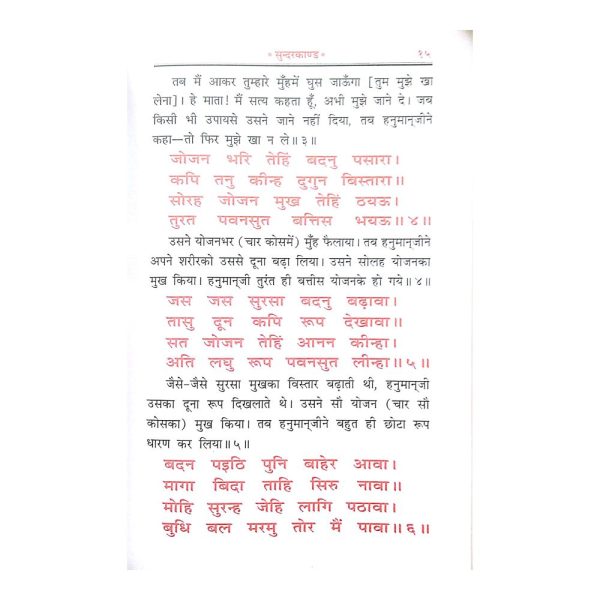 * सुन्दरकाण्ड * १५
तब मैं आकर तुम्हारे मुँहमें घुस जाऊँगा [तुम मुझे खा
लेना]। हे माता! मैं सत्य कहता हूँ, अभी मुझे जाने दे। जब
किसी भी उपायसे उसने जाने नहीं दिया, तब हनुमान्‌जीने
कहा—तो फिर मुझे खा न ले॥३॥
जोजन भरि तेहिं बदनु पसारा।
कपि तनु कीन्ह दुगुन बिस्तारा॥
सोरह जोजन मुख तेहिं ठयऊ।
तुरत पवनसुत बत्तिस भयऊ॥४॥
उसने योजनभर (चार कोसमें) मुँह फैलाया। तब हनुमान्‌जीने
अपने शरीरको उससे दूना बढ़ा लिया। उसने सोलह योजनका
मुख किया। हनुमान्‌जी तुरंत ही बत्तीस योजनके हो गये॥४॥
जस जस सुरसा बदनु बढ़ावा।
तासु दून कपि रूप देखावा॥
सत जोजन तेहिं आनन कीन्हा।
अति लघु रूप पवनसुत लीन्हा॥५॥
जैसे-जैसे सुरसा मुखका विस्तार बढ़ाती थी, हनुमान्‌जी
उसका दूना रूप दिखलाते थे। उसने सौ योजन (चार सौ
कोसका) मुख किया। तब हनुमान्‌जीने बहुत ही छोटा रूप
धारण कर लिया॥५॥
बदन पइठि पुनि बाहेर आवा।
मागा बिदा ताहि सिरु नावा॥
मोहि सुरन्ह जेहि लागि पठावा।
बुधि बल मरमु तोर मैं पावा॥६॥